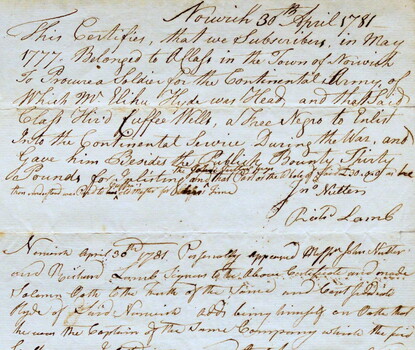 Norwich 30th April 1781
This Certifies, that we Subscribers, in May
1777. Belonged to A Class in the Town of Norwich
To Procure a Soldier for the Continental Army of
Which Mr Elihu Hyde was Head, and that Said
Class Hir'd Cuffee Wells, a Free Negro to Enlist
Into the Continental Service During the War, and
Gave him Besides the Publick Bounty Thirty
Pounds for Inlisting and that
Jno Nutter
Richd Lamb
Norwich April 30th 1781 Personally appeared Messrs John Nutter
and Richard Lamb Signers to the Above Certificate and made
Solemn Oath to the Truth of the Same and
Hyde of Said Norwich also being himself on Oath that
he was the Captain of the Same Company which the said